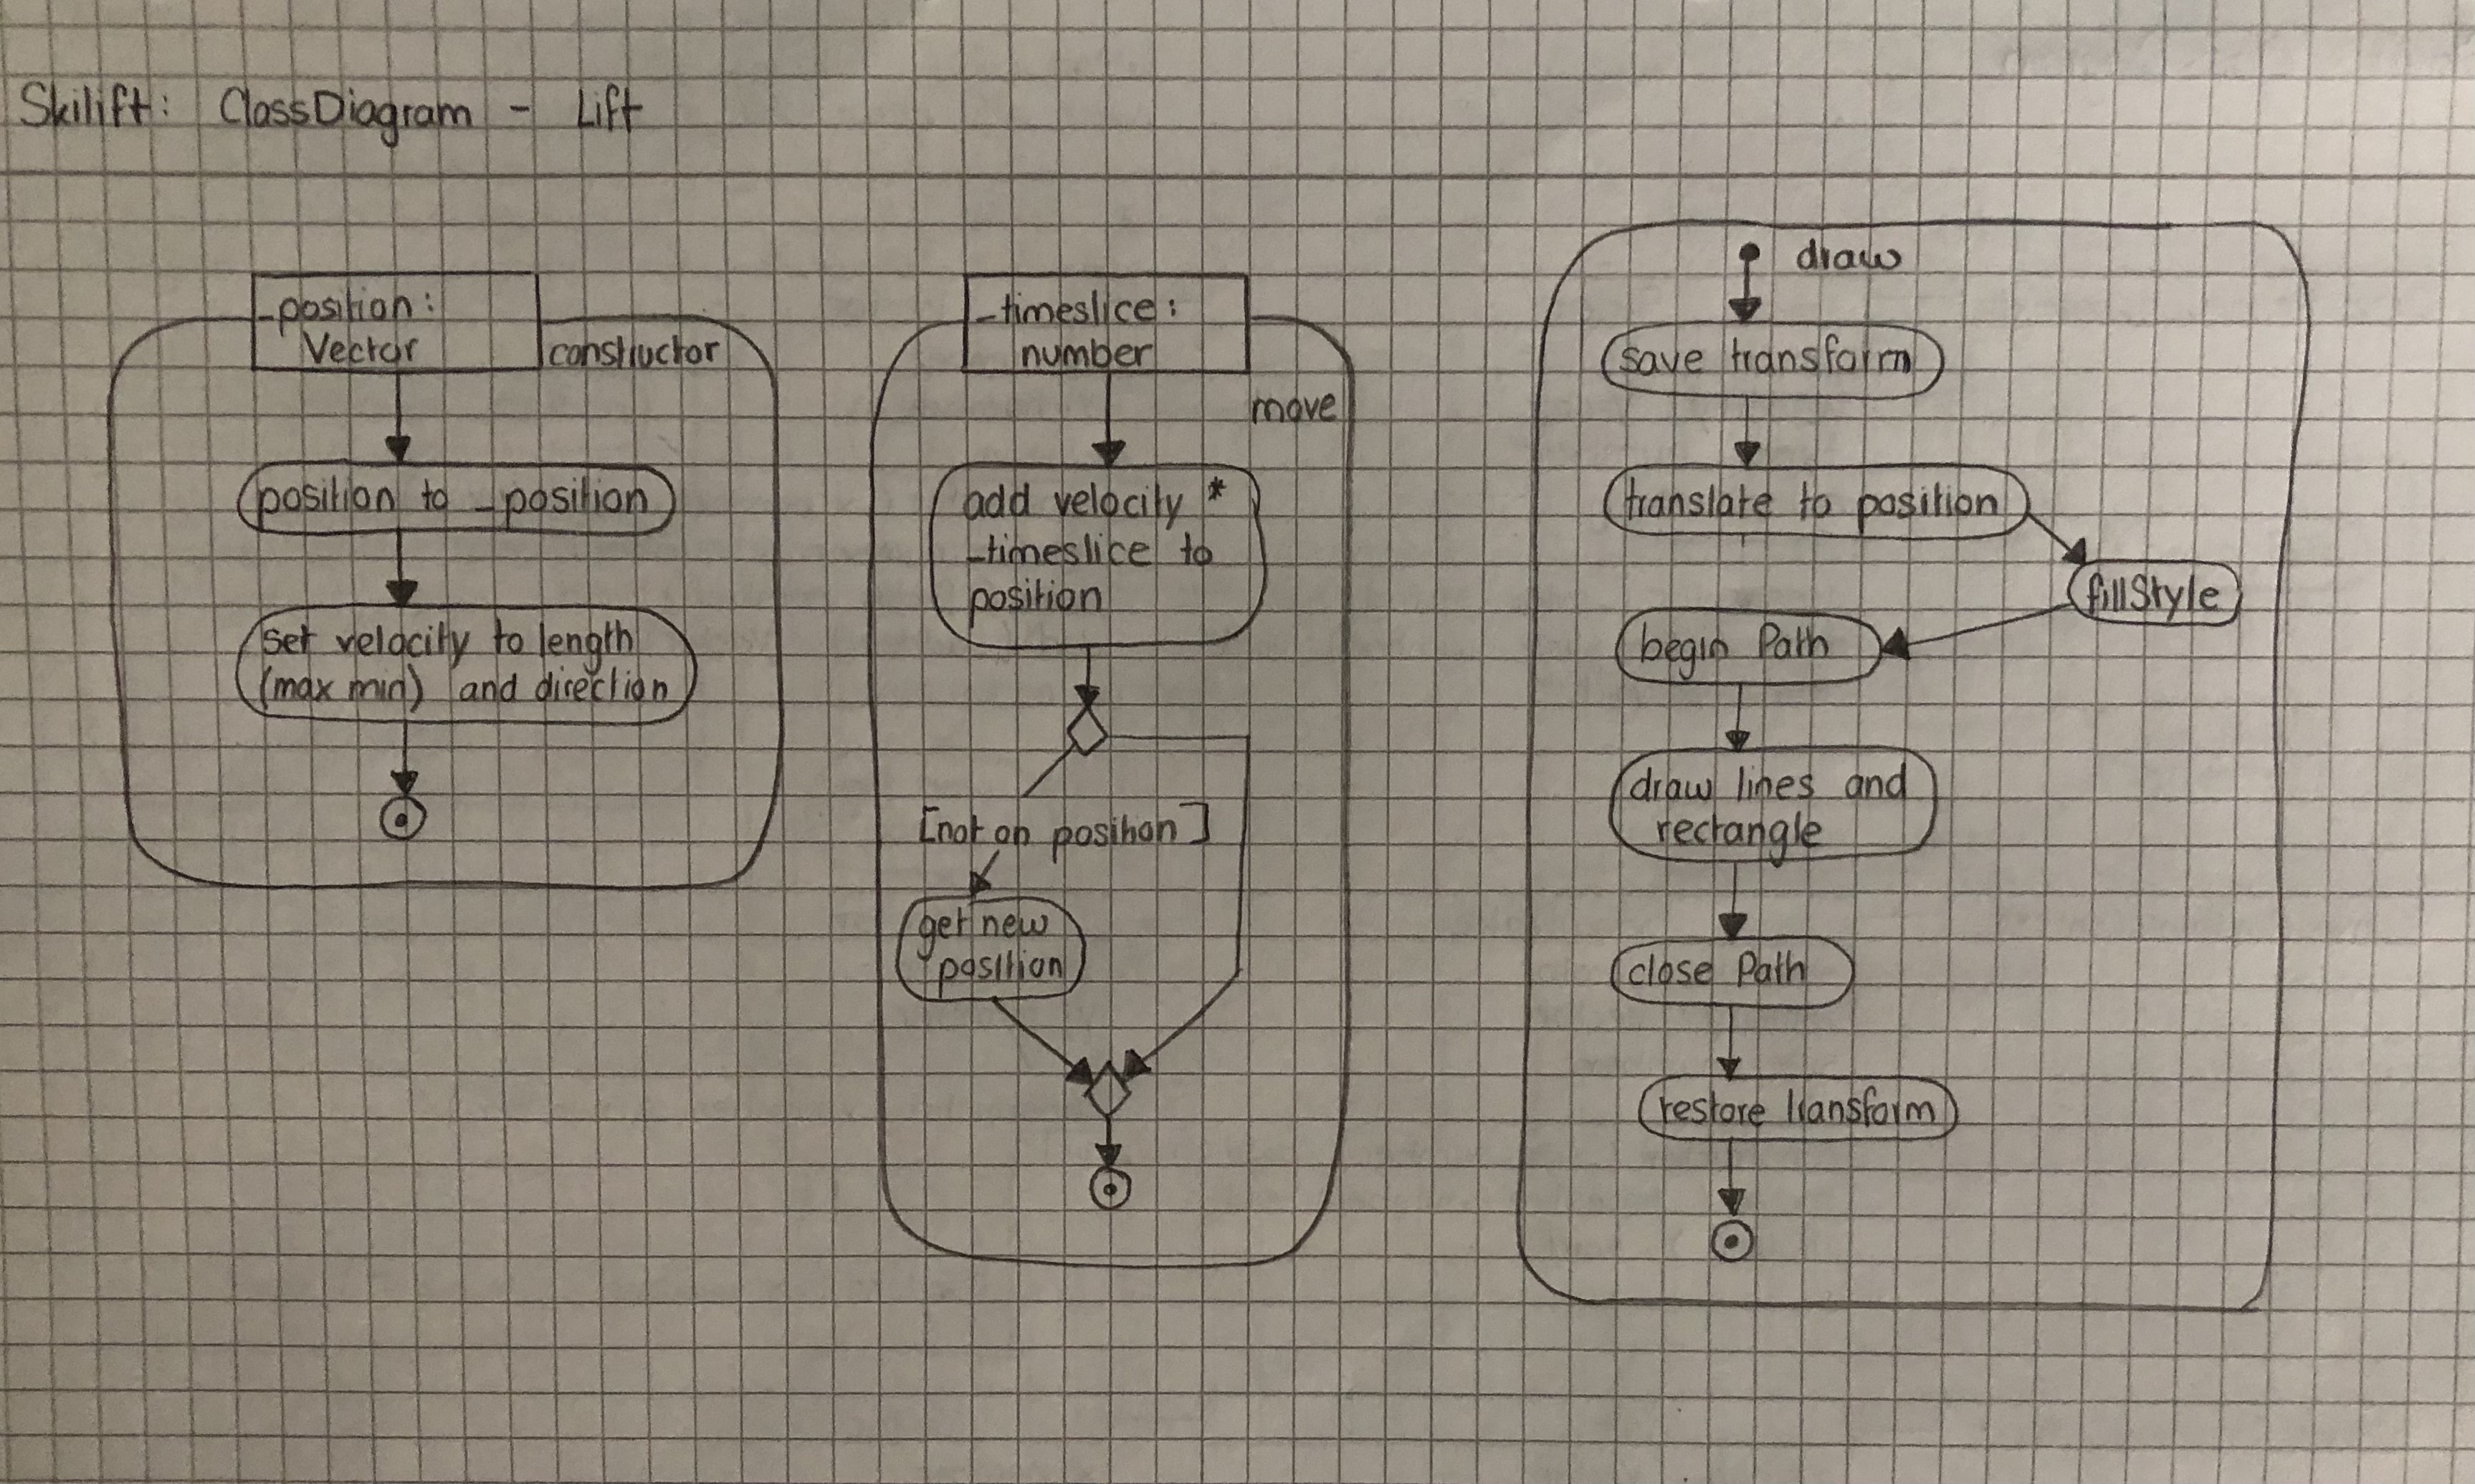 Skilift: ClassDiagram - Lift
_position:
Vector
constructor
position to _position
set velocity to length
(max min) and direction
_timeslice:
number
move
add velocity *
_timeslice to
position
[not on position]
get new
position
draw
save transform
translate to position
fillStyle
begin Path
draw lines and
rectangle
close Path
restore transform